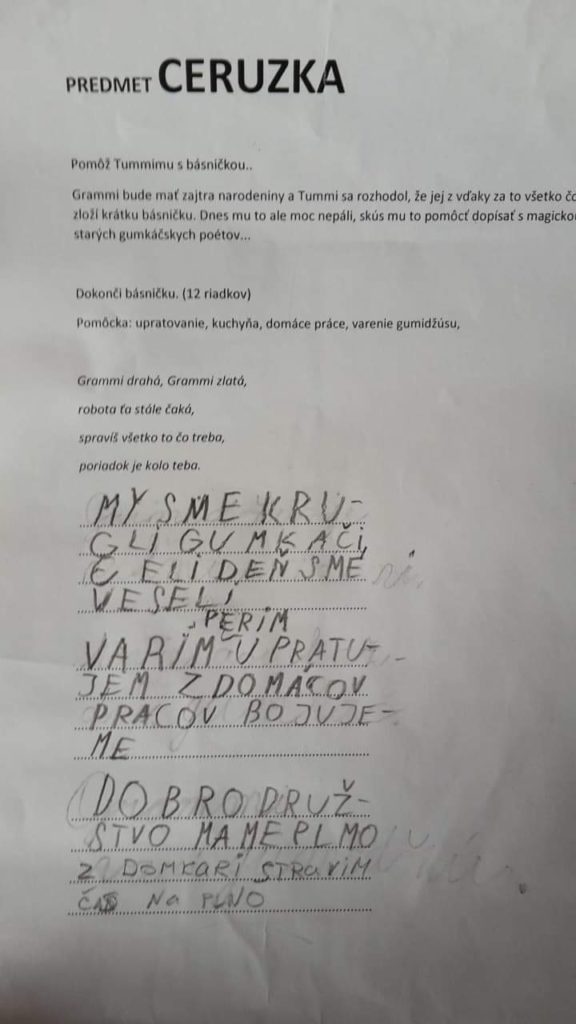 PREDMET CERUZKA
Pomôž Tummimu s básničkou..
Grammi bude mať zajtra narodeniny a Tummi sa rozhodol, že jej z vďaky za to všetko čo
zloží krátku básničku. Dnes mu to ale moc nepáli, skús mu to pomôcť dopísať s magickou
starých gumkáčskych poétov...
Dokonči básničku. (12 riadkov)
Pomôcka: upratovanie, kuchyňa, domáce práce, varenie gumidžúsu,
Grammi drahá, Grammi zlatá,
robota ťa stále čaká,
spravíš všetko to čo treba,
poriadok je kolo teba.
MY SME KRU-
GLI GUMKAČI,
CELI DEŇ SME
VESELI
PERIM
VARIM UPRATU-
JEM Z DOMÁCOV
PRACOV BOJUJE-
ME
DOBRODRUŽ-
STVO MAME PLMO
Z DOMKARI STRAVIM
ČAS Na PLNO